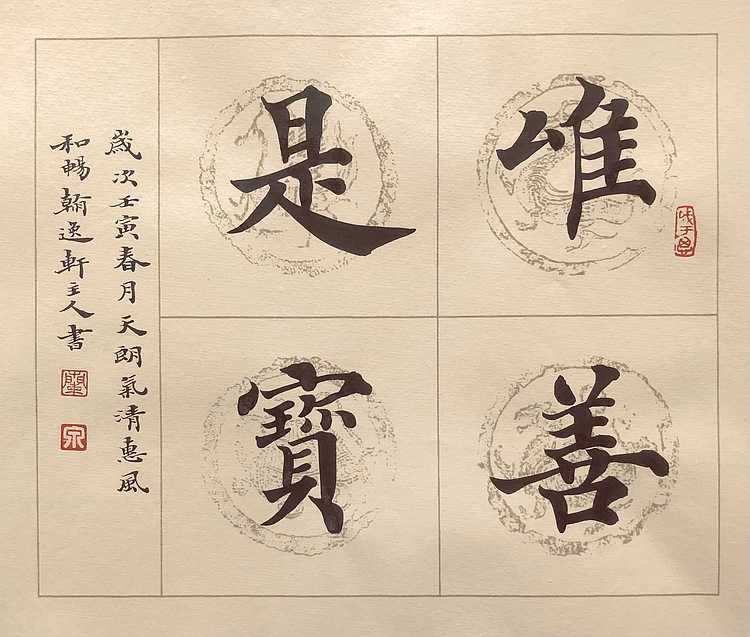 唯善
是寶
歲次壬寅春月天朗氣清惠風
和暢翰逸軒主人書